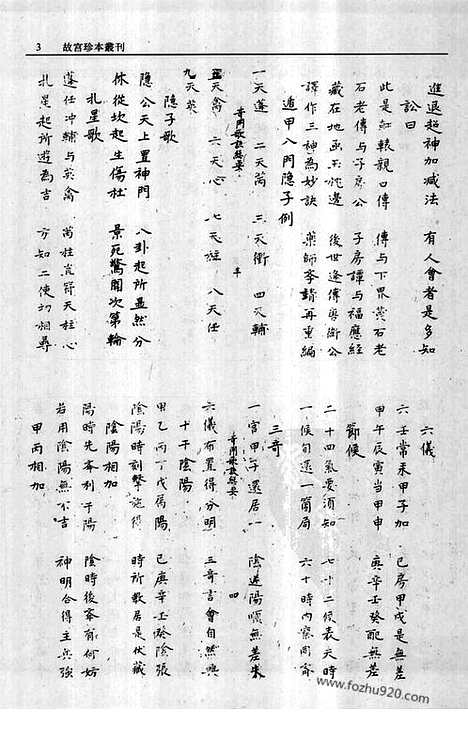 3 故宮珍本叢刊
進退超神加減法 有人會者是多知
訟曰
此是軒轅親口傳 傳与下界黃石老
石老傳与子房公 子房譚与福應經
藏在地函玉 邊 後世逢傳粤衛公
譯作三神為妙訣 藥師李靖再重編
遁甲八門隐子例
一天蓬 二天芮 三天衝 四天輔
奇門歌訣 要
五天禽 六天心 七天柱 八天任
九天英
隐子歌
隐公天上置神門 八卦起所显然分
休從坎起生傷杜 景死驚開次第輪
九星歌
蓬任冲輔与英禽 芮柱 天柱心
九星起所遊為吉 方知二使相尋
六儀
六壬常来甲子加 己房甲戌是無差
甲午辰寅当甲申 庚辛壬癸配無差
節候
二十四氣要須知 七十二候表天時
一候自還一箇局 六十時內宗周
三奇
一宮甲子還居一 陰逆陽順無差失
奇門歌訣 要 四
六儀布置得分明 三奇言會自然興
十干陰陽
甲乙丙丁戊属陽 己庚辛壬 陰張
陰陽時刻擊施得 時所 居是伏藏
陰陽相加
陽時先奉利于陽 陰時後奉有何妨
若用陰陽無不吉 神明合得主兵強
甲丙相加
www.fozhu920.com